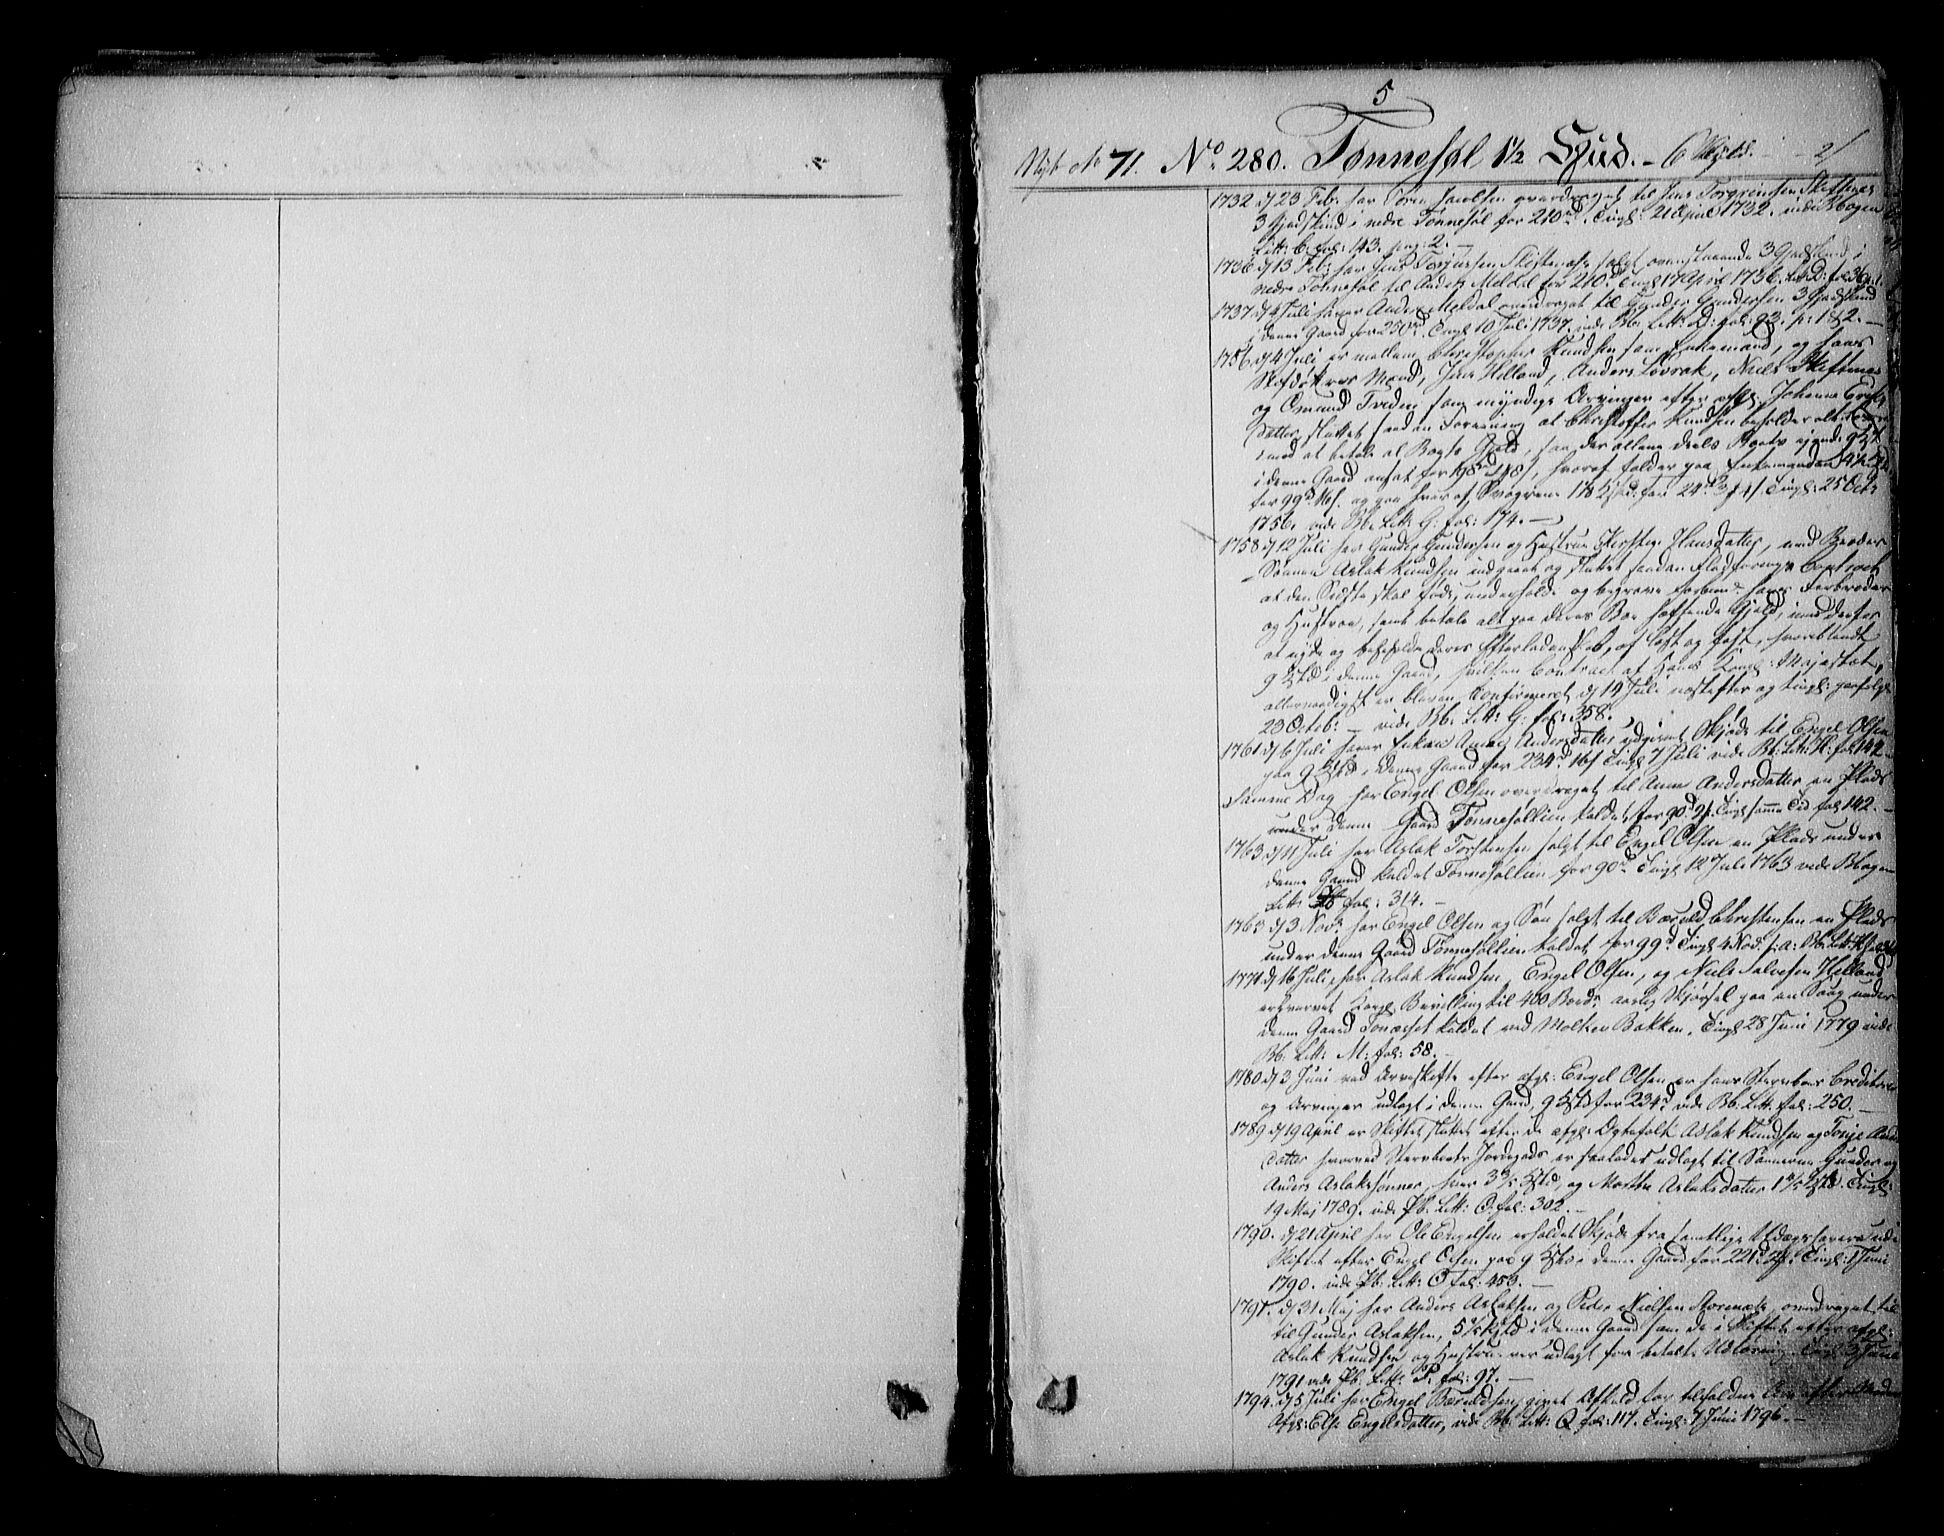 5
No 71. No 280. Tønnesøl 1 1/2 Hud. 2/
1732 d/23 Feb. har Søren Jacobsen overdraget til Jens Torgrimsen Skiftenes
3 Gjedskind i nedre Tønnesøl for 210rd. Tingl: 21 April 1732. vide Bogen
Litt: C. fol: 143. pag: 2. —
1736 d/13 Feb: har Jens Torjussen Skiftenes solgt ovenstaaende 3 Gjedskind i
nedre Tønnesøl til Anders Meldal for 210rd Tingl 17 April 1736. Litt D: fol 36
1737 d/4 Juli haver Anders Meldal overdraget til Gunder Gundersen 3 Gjedskind
i denne Gaard for 230rd. Tingl 10 Juli 1737. vide Pb. Litt: D: fol: 93. p: 1 & 2. —
1756. d/4 Juli er mellem Christopher Knudsen som Enkemand, og hans
Mænd, Jens Helland, Anders Lovrak, Niels Skiftenes
og Omund Tveden som myndige Arvinger efter afgl. Johanne
Datter sluttet saadan Forening at Christoffer Knudsen beholder
imod at betale al Boets Gjæld, saa der allene deels Boets ejende
i denne Gaard ansat for 198rd, hvoraf falder paa Enkemanden
for 99rd og paa hver af Svogrene for 24rd Tingl: 25 Octb
1756. vide Pb. Litt: G: fol: 174. —
1758 d/12 Juli har Gunder Gundersen og Hustrue Kirsten Hansdatter, med Broder
Sønnen Aslak Knudsen indgaaet og sluttet saadan Flødførings Contract
at den Sidste skal føde, underholde og begrave hans Farbroder
og Hustrue, samt betale alt paa deres Boe heftende Gjæld, imod derfor
at nyde og beholde deres Efterladenskab, af Løst og Fast, hvoriblandt
i denne Gaard, hvilken Contract af Hans Kongl: Majestæt,
allernaadigst er bleven Confirmeret d/19 Juli næstefter og Tingl:
23 Octob: — vide Pb: Litt: G: fol: 358.
1761 d/6 Juli haver Enken Anne Andersdatter udgivet Skjøde til Engel Olsen
paa i denne Gaard for 234rd 16s Tingl 7 Juli vide Pb: Litt: H: fol 142
Samme Dag har Engel Olsen overdraget til Anne Andersdatter en Plads
under denne Gaard Tønnesøllien kaldet, for 90rd 2s. Tingl samme Tid fol 142. —
1763 d/11 Juli har Aslak Torstensen solgt til Engel Olsen en Plads under
denne Gaard kaldet Tønnesøllien for 90rd Tingl 12 Juli 1763 vide Pbogen
Litt: fol: 314. —
1765 d/3 Novb. har Engel Olsen og Søn solgt til Bærulf Christensen en Plads
under denne Gaard Tønnesøllien kaldet for 99rd Tingl 4 Nov. s: a: Pb: Litt:
1771 d/16 Juli, har Aslak Knudsen, Engel Olsen, og Niels Salvesen Helland
erhvervet Kongl Bevilling til 400 Bords aarlig Skjørsel paa en Saug under
denne Gaard Tonæset kaldet ved Molten Bakken, Tingl 28 Juni 1779 vide
Pb: Litt: M: fol: 58. —
1780 d/3 Juni ved Arveskifte efter afgl: Engel Olsen er hans Sterboes Creditorer
og Arvinger udlagt i denne Gaard, for 234rd vide Pb: Litt: fol: 250. —
1789 d/19 April er Skiftet sluttet efter de afgl: Ægtefolk Aslak Knudsen og Tonje
Datter hvorved Sterboets Jordegods er saaledes udlagt til Sønnerne Gunder og
Anders Aslaksønner, hver 3 3/5 og Marthe Aslaksdatter 1 4/5 Tingl:
19 Maj 1789. vide Pb. Litt: O. fol: 302. —
1790. d/21 April har Ole Engelsen erholdet Skjøde fra samtlige Udlægshavere
Skiftet efter Engel Olsen paa i denne Gaard for 221rd Tingl: 1 Juni
1790. vide Pb: Litt: O fol: 453. —
1791. d/31 Maj har Anders Aslaksen og Peder Nielsen overdraget til
til Gunder Aslaksen, i denne Gaard som de i Skiftet efter afgl:
Aslak Knudsen og Hustrue var udlagt for betalt Udløsning. Tingl: 3 Juni
1791 vide Pb: Litt: P. fol: 97. —
1794. d/5 Juli har Engel Bærulfsen givet Afkald for tilfalden Arv efter Moder
Afgl: Else Engelsdatter, vide Pb: Litt: Q fol: 117. Tingl: 7 Juni 1796. —